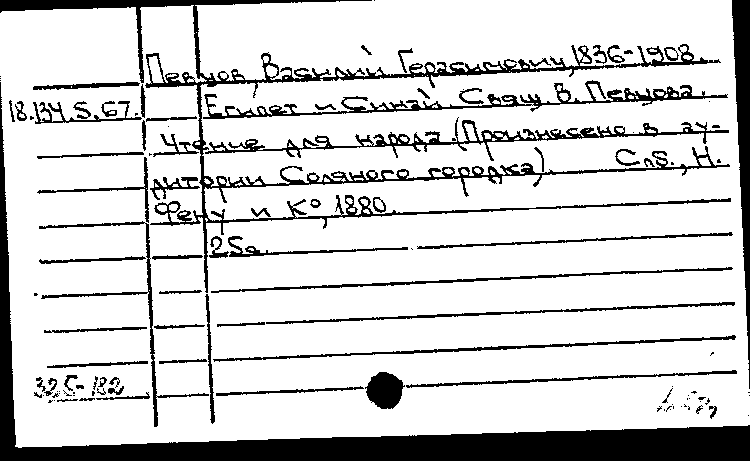 Певцов, Василий Герасимович, 1836-1908.
18.134.5.67. Египет и Синай. Свящ. В. Певцова.
Чтение для народа. (Произнесено в ау-
дитории Соляного городка). Спб., Н.
Фену и К°, 1880.
25с.
325-182